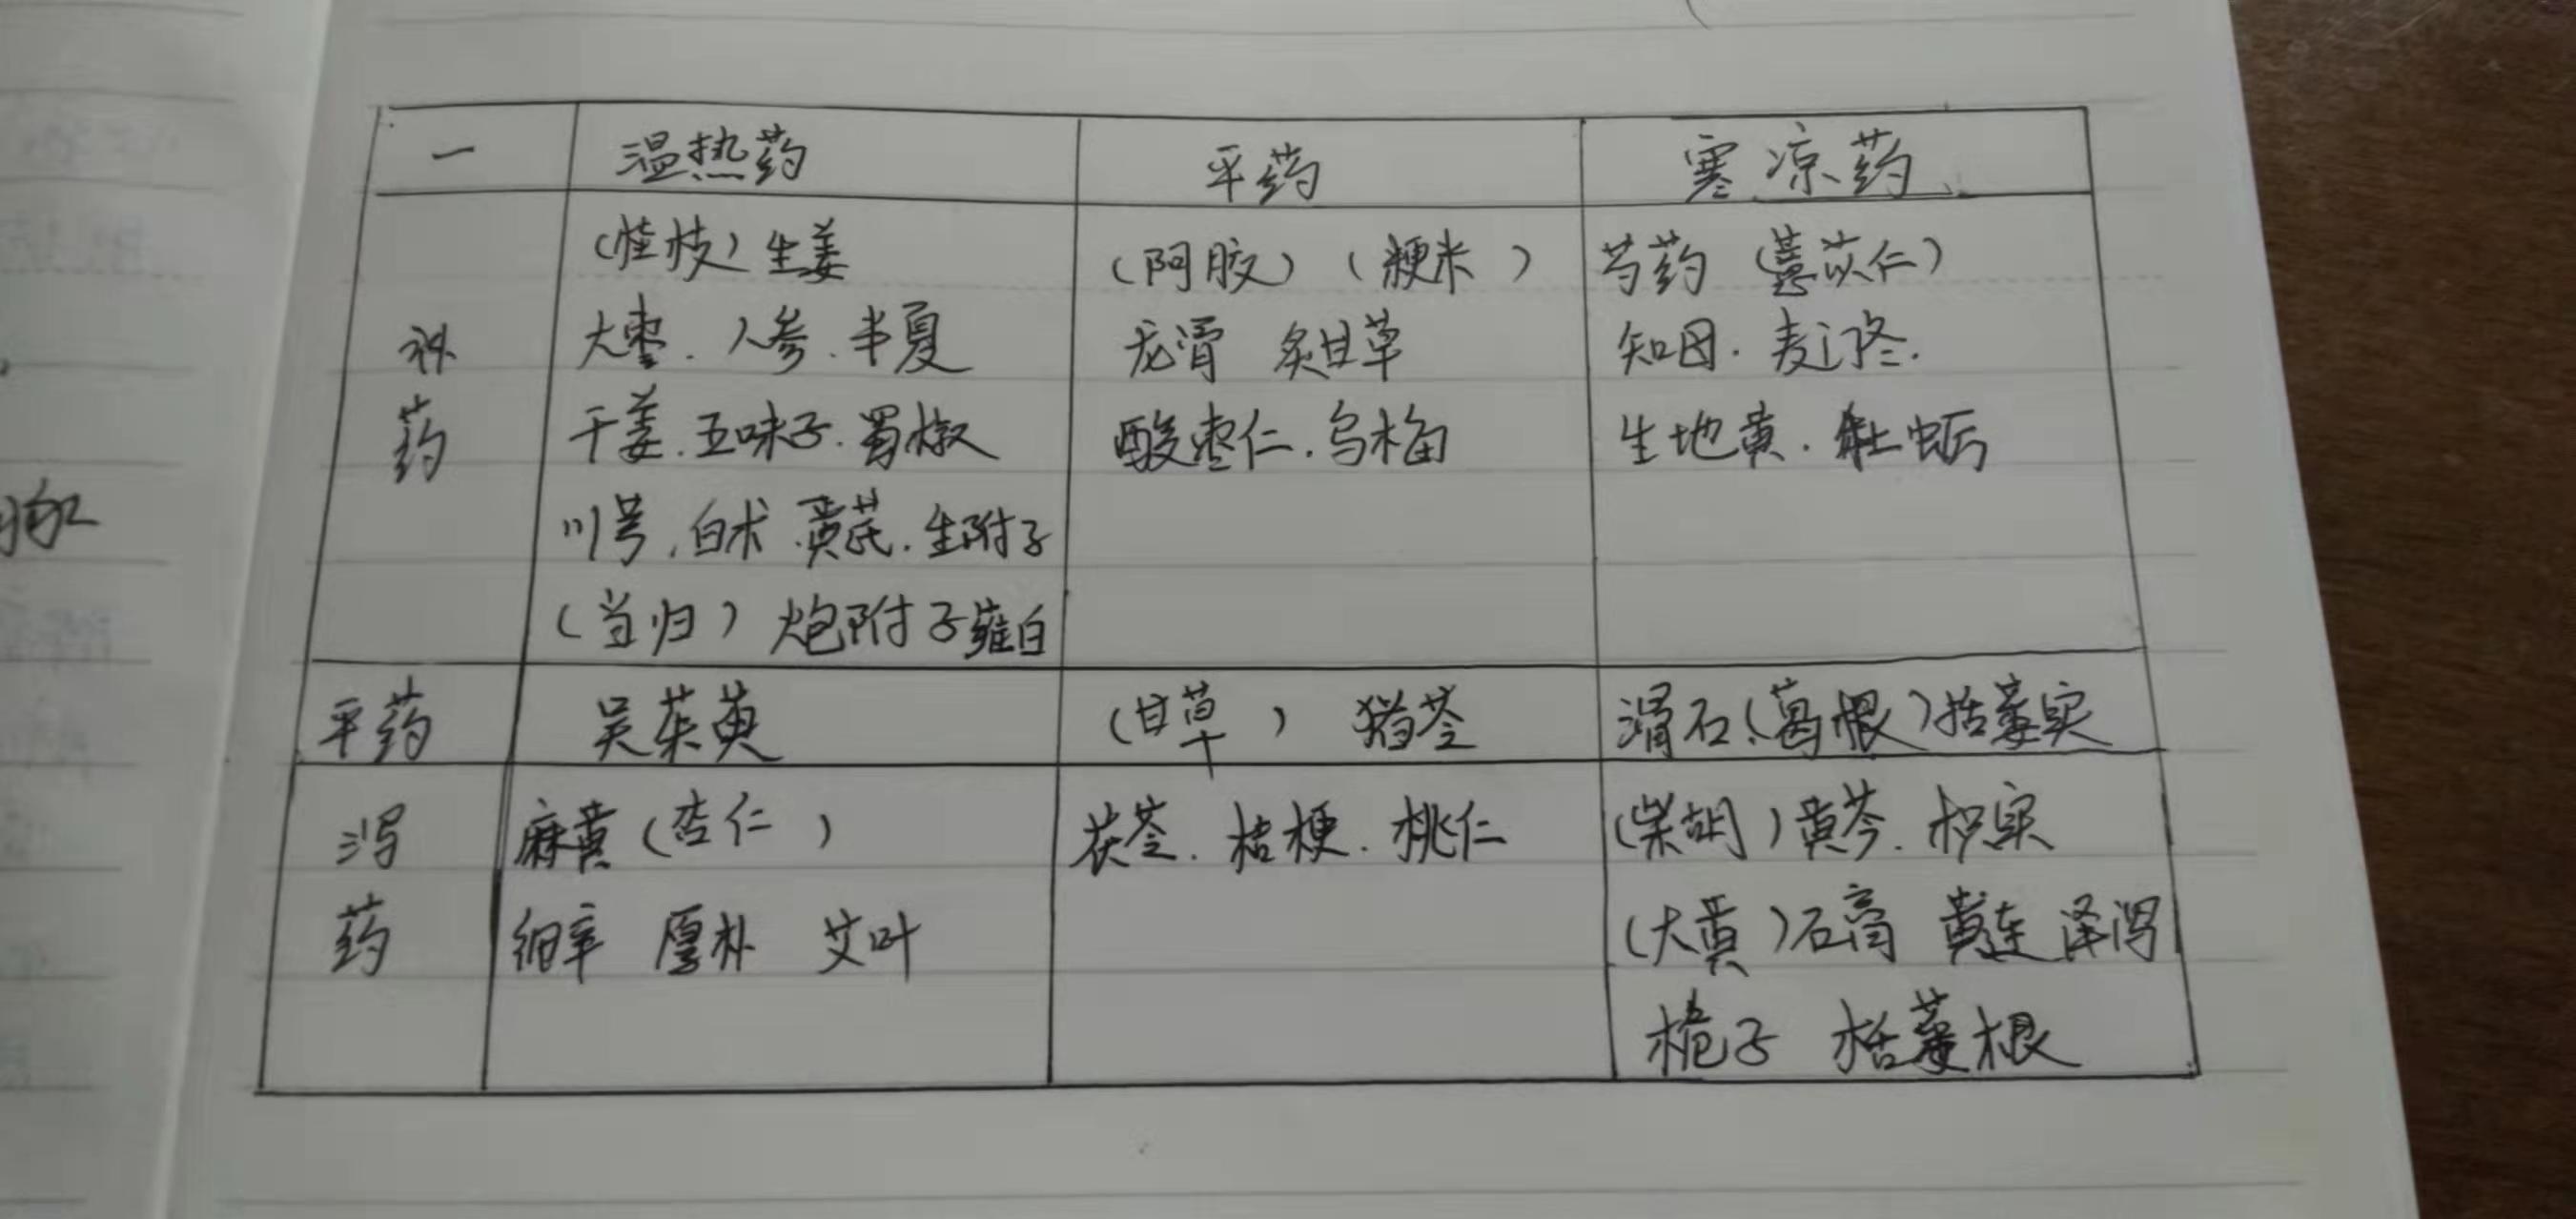 一 温热药 平药 寒凉药
补药
(桂枝) 生姜
大枣.人参.半夏
干姜.五味子.蜀椒
川芎,白术.黄芪.生附子
(当归) 炮附子薤白
(阿胶) (粳米)
龙骨 炙甘草
酸枣仁.乌梅
芍药 (薏苡仁)
知母.麦门冬.
生地黄.牡蛎
平药 吴茱萸 (甘草) 猪苓 滑石(葛根)栝蒌实
泻药
麻黄(杏仁)
细辛 厚朴 艾叶
茯苓.桔梗.桃仁
(柴胡)黄芩.枳实
(大黄)石膏 黄连 泽泻
栀子 栝蒌根